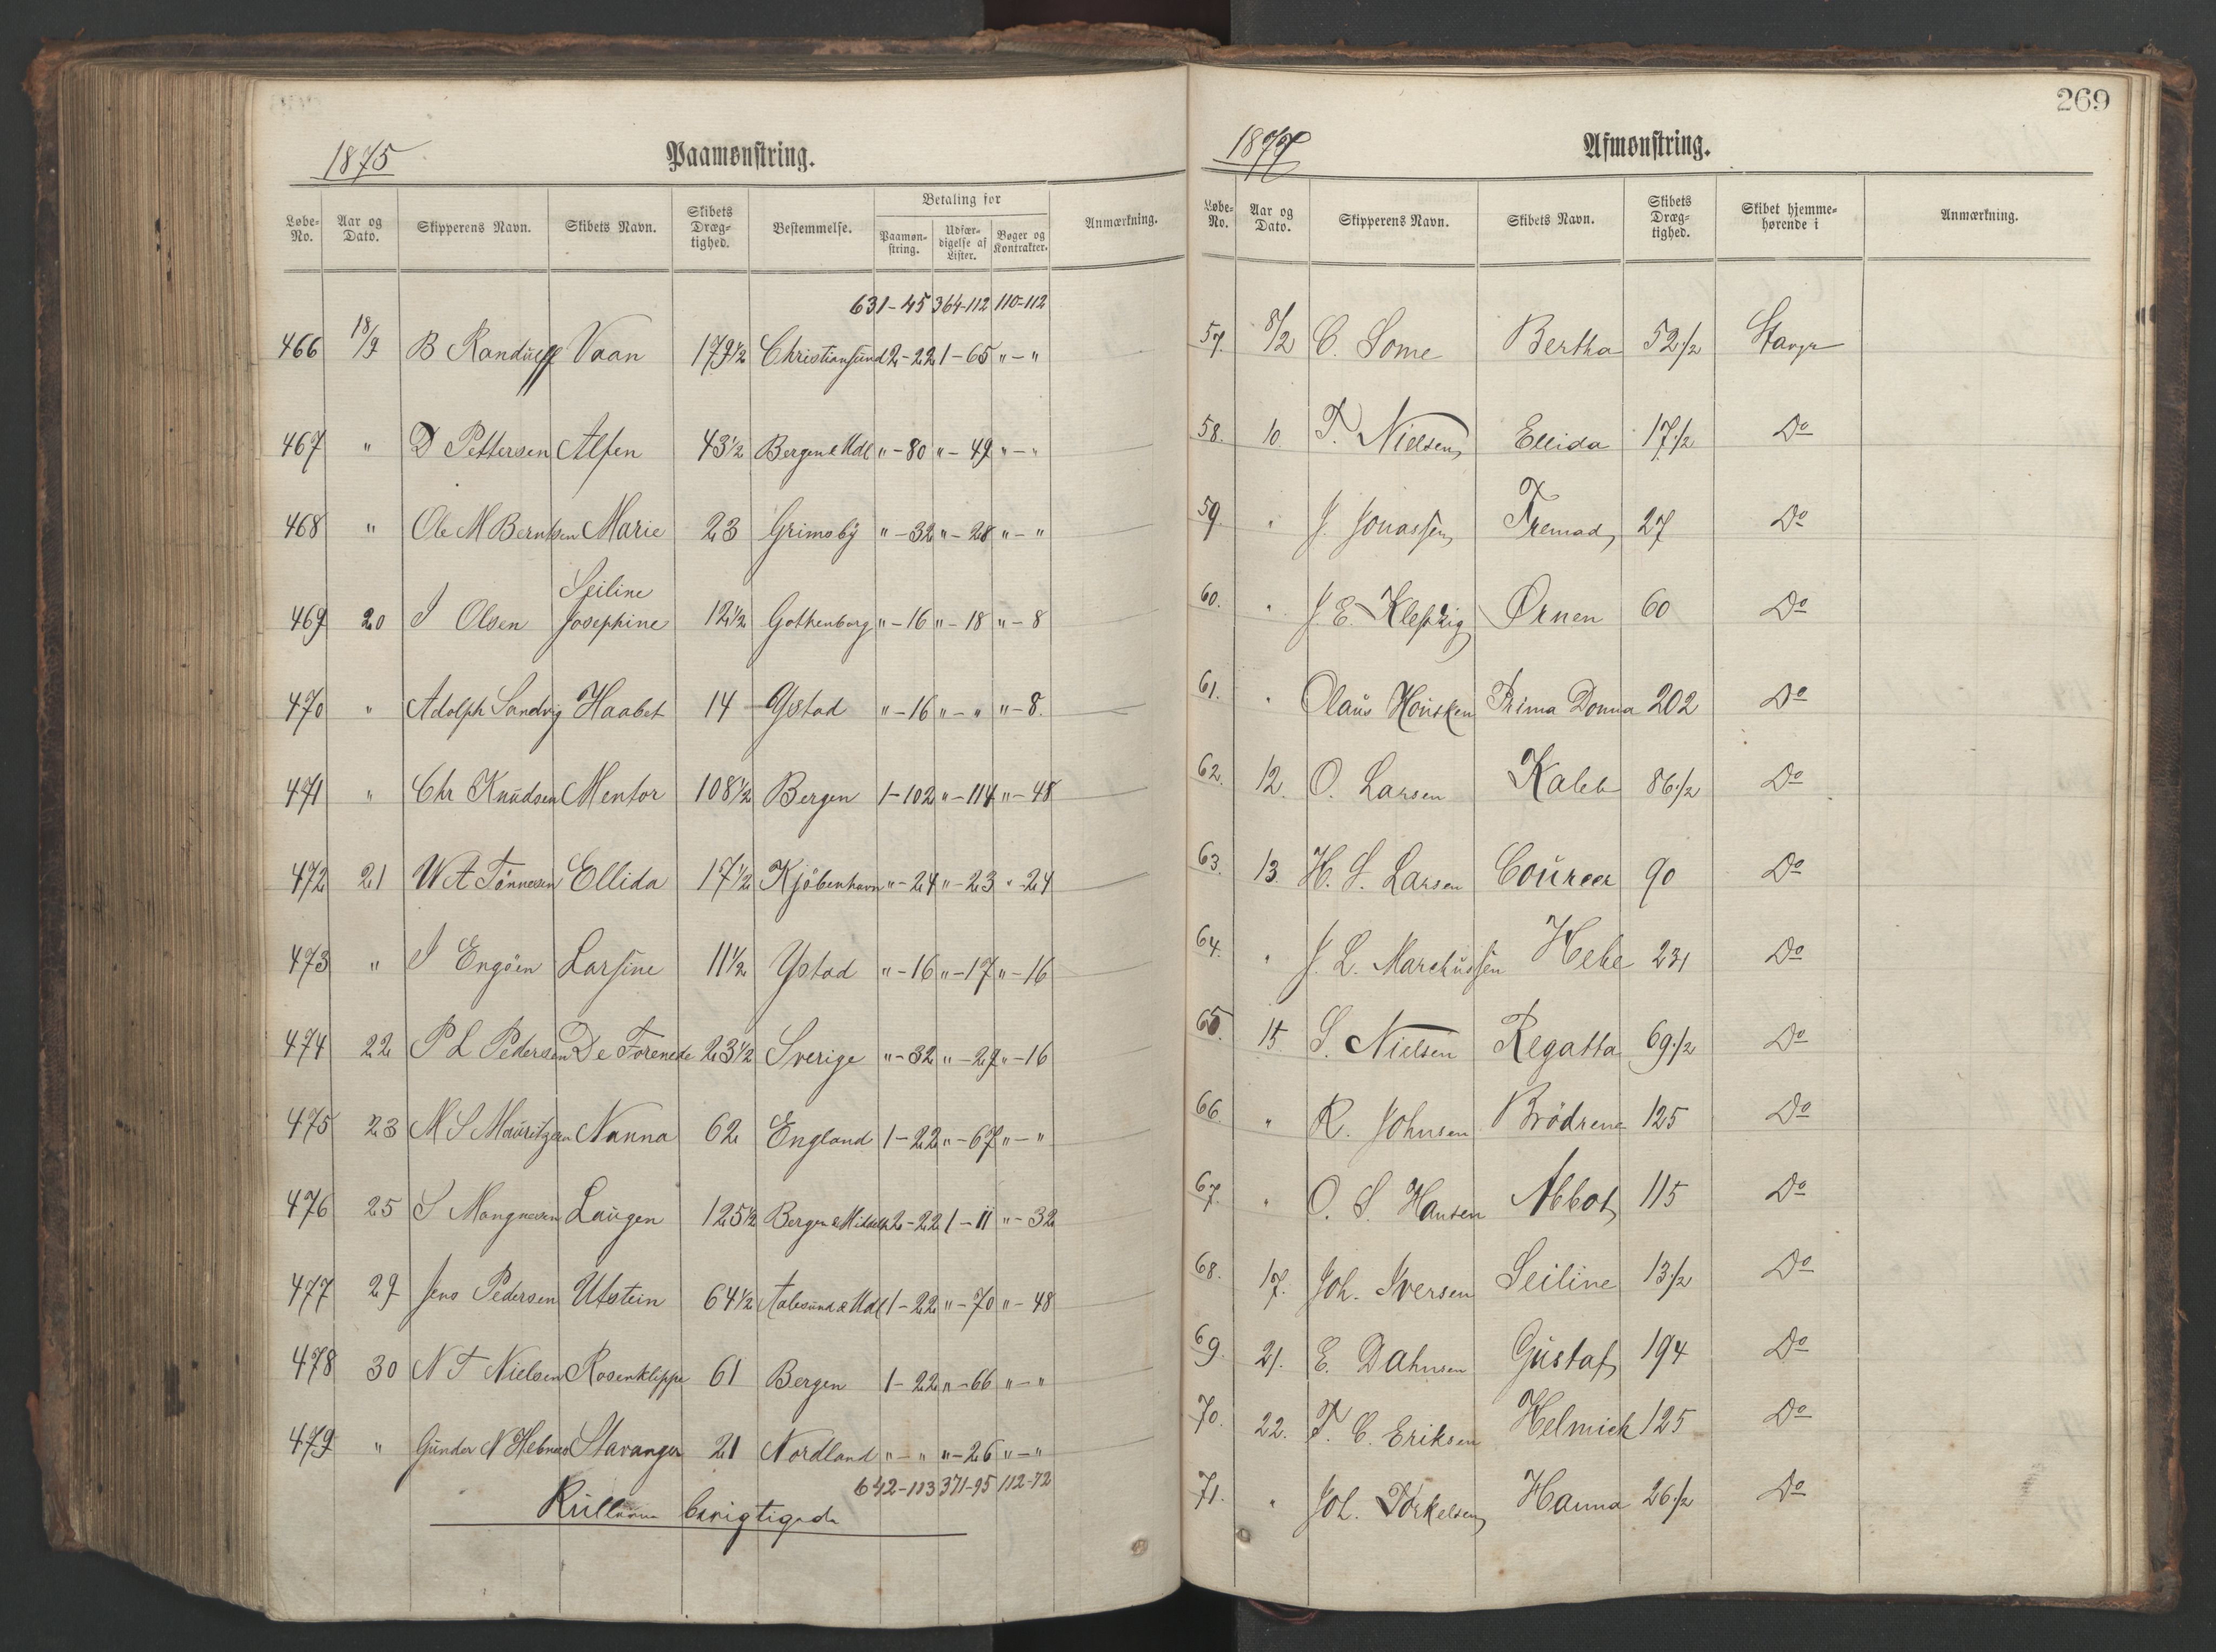 1875 Paamønstring.
Løbe-No. Aar og Dato. Skipperens Navn. Skibets Navn. Skibets Dræg-tighed. Bestemmelse. Betaling for Paamøn-string. Udfær-digelse af Lister. Bøger og Kontrakter. Anmærkning.
631-45 364-112 110-112
466 18/9 B Randulff Vaan 179½ Christiansund 2-22 1-65 "-"
467 " D Pettersen Alfen 43½ Bergen & Mdl "-80 "-49 "-"
468 " Ole M Berntsen Marie 23 Grimsby "-32 "-28 "-"
Seiline
469 20 I Olsen Josephine 12½ Gothenborg "-16 "-18 "-8
470 " Adolph Sandvig Haabet 14 Ystad "-16 "-" "-8.
471 " Chr Knudsen Mentor 108½ Bergen 1-102 "-114 "-48
472 21 W A Tönnesen Ellida 17½ Kjöbenhavn "-24 "-23 "-24
473 " I Engöen Larsine 11½ Ystad "-16 "-17 "-16
474 22 P L Pedersen De Forenede 23½ Sverige "-32 "-29 "-16
475 23 M S Mauritzen Nanna 62 England 1-22 "-67 "-"
476 25 S Mangnesen Laugen 125½ Bergen & Middelh 2-22 1-11 "-32
477 29 Jens Pedersen Utstein 64½ Aalesund & Mdl 1-22 "-70 "-48
478 30 N T Nielsen Rosenklippe 61 Bergen 1-22 "-66 "-"
479 " Gunder N Stavanger 21 Nordland "-" "-26 "-"
642-113 371-95 112-72
Rullerne berigtigede
269
1877 Afmønstring.
Løbe-No. Aar og Dato. Skipperens Navn. Skibets Navn. Skibets Dræg-tighed. Skibet hjemme-hørende i Anmærkning.
57. 8/2 C. Some Bertha 52½ Stavgr
58. 10. T. Nielsen Ellida 17½ Do
59. " J. Jonassen Fremad 27 Do
60. " J. E. Kleptzig Ørnen 60 Do
61. " Olaus Housken Prima Donna 202 Do
62. 12. O. Larsen Kaleb 86½ Do
63. 13. H. S. Larsen Coureer 90 Do
64. " J. L. Marchussen Hebe 231 Do
65. 15. S. Nielsen Regatta 69½ Do
66. " R. Johnsen Brödrene 125 Do
67. " O. S. Hansen Abbot 115 Do
68. 17. Joh. Iversen Seiline 13½ Do
69. 21. E. Dahnsen Gustaf 194 Do
70. 22. T. C. Eriksen Helmich 125 Do
71. " Joh. Torkelsen Hanna 26½ Do